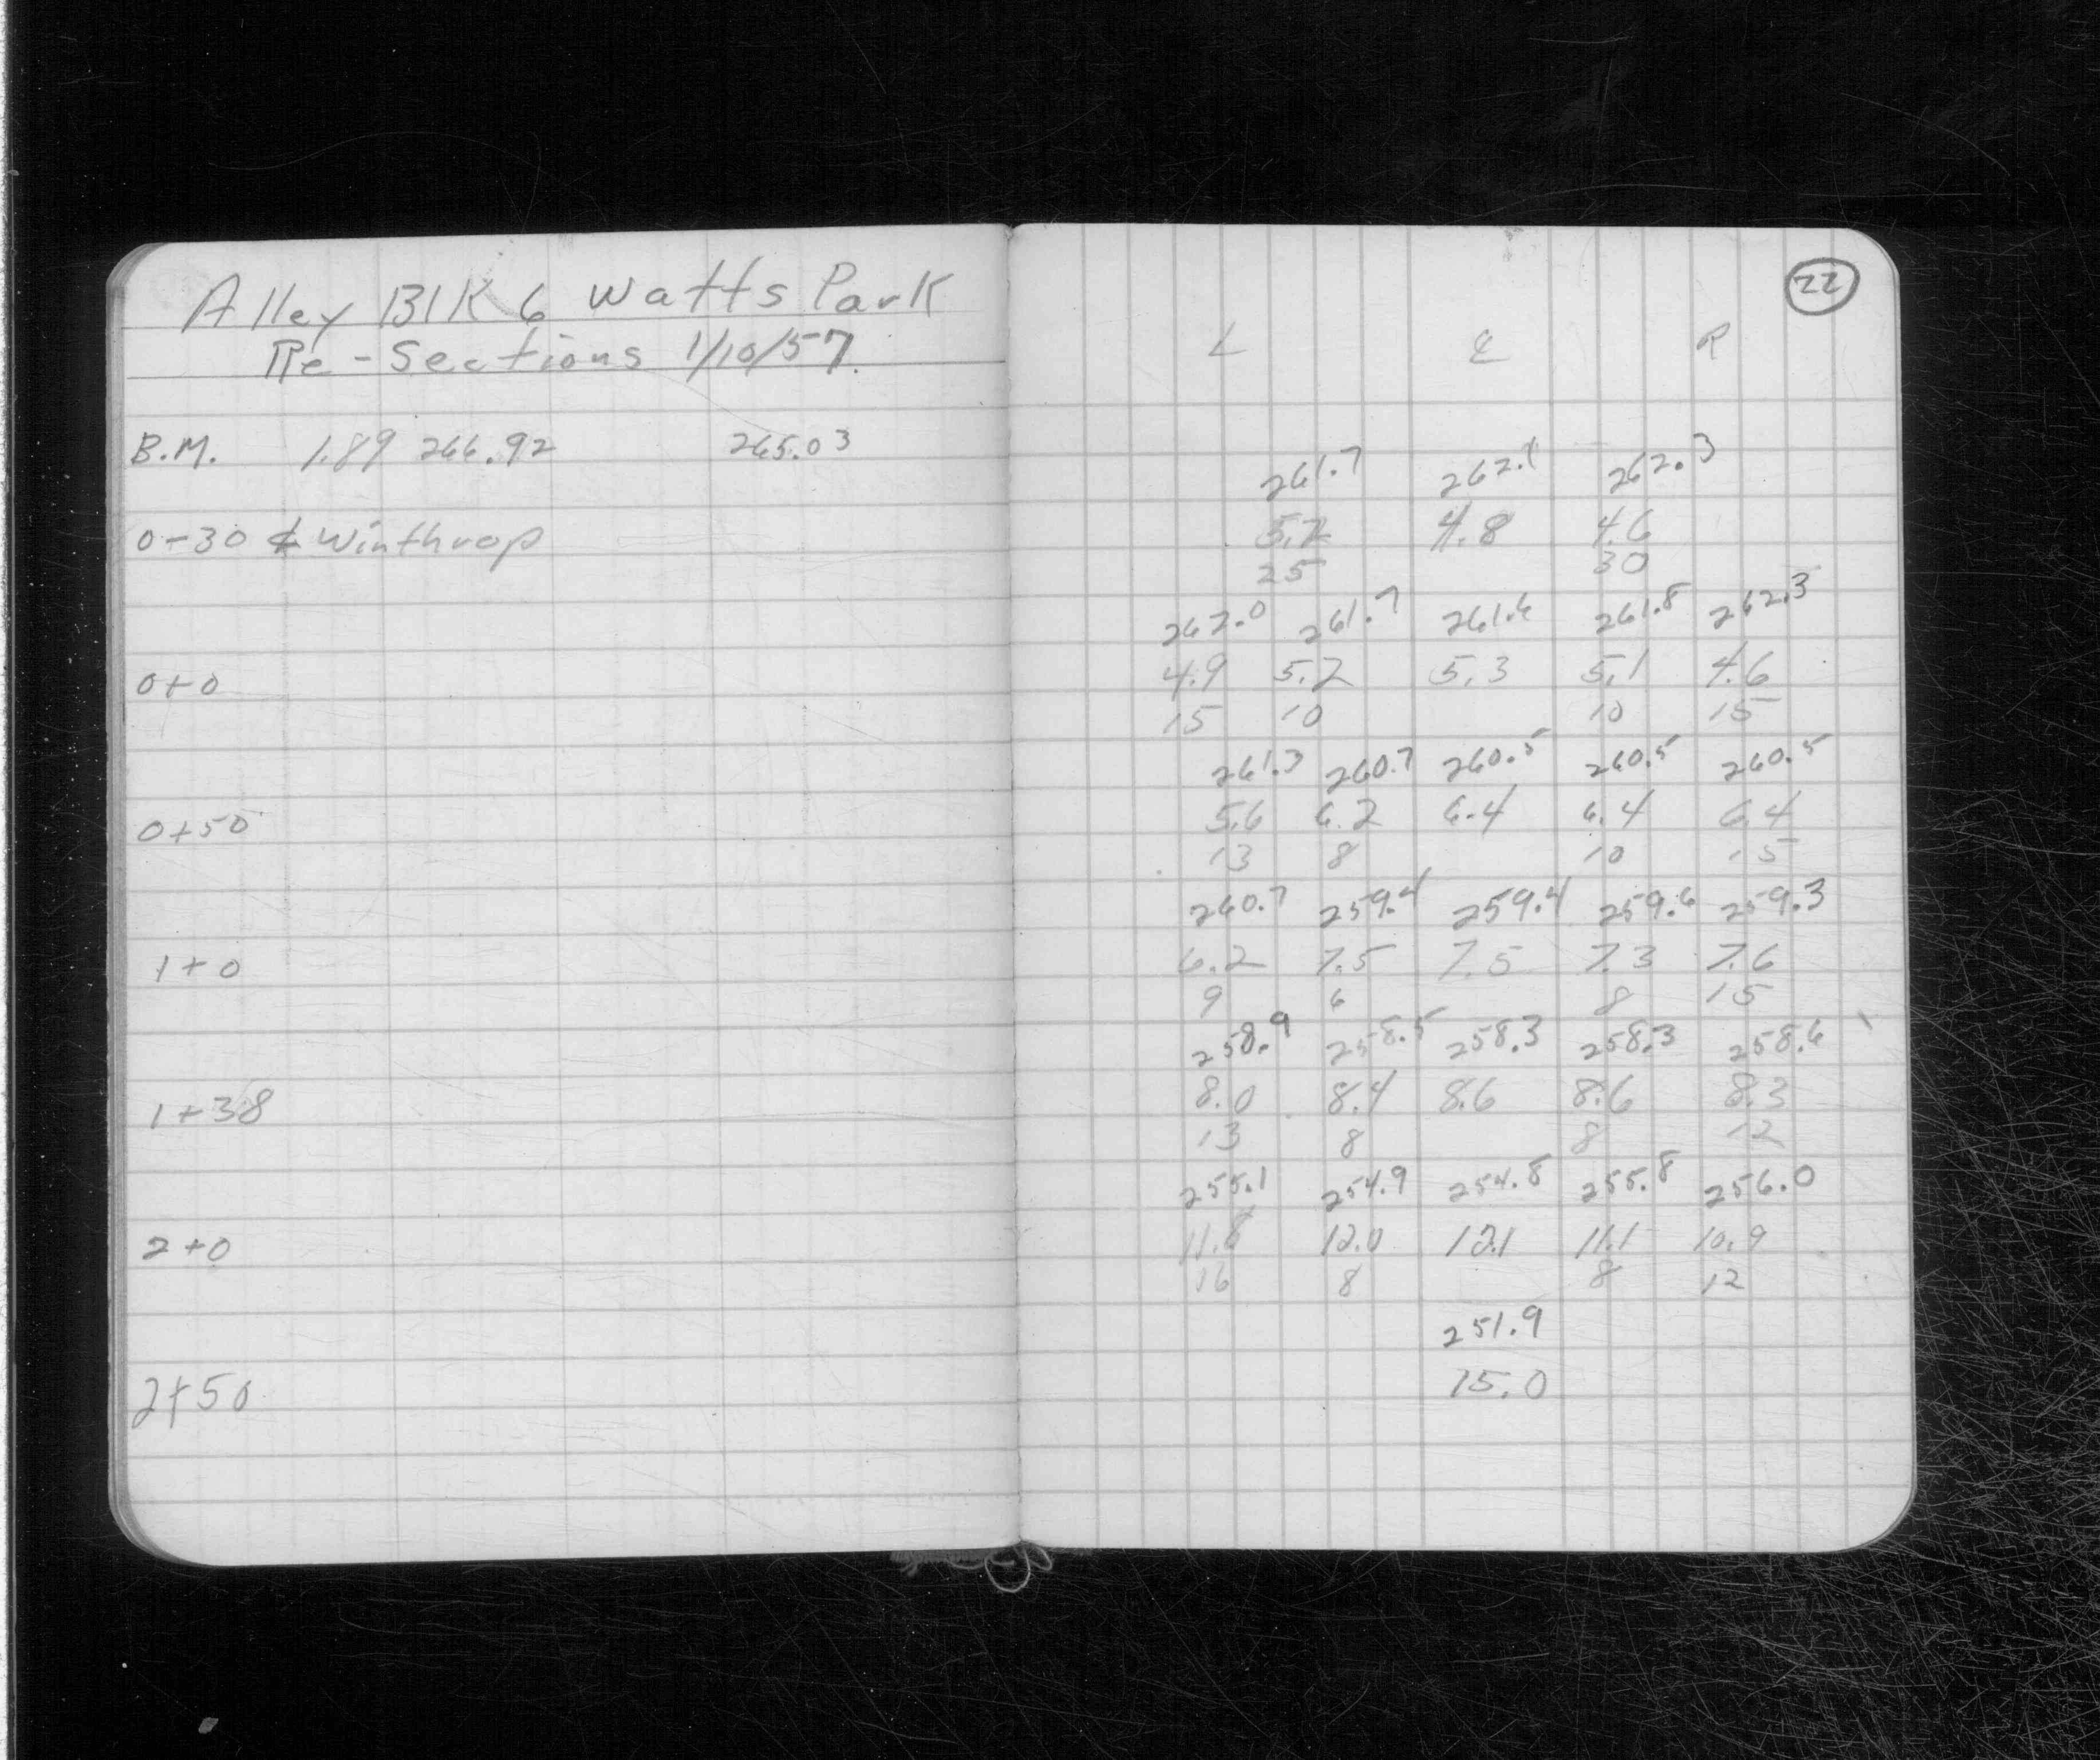 Alley Blk 6 Watts Park
Re-Sections 1/10/57.
B.M. 1.89 266.92 265.03
0-30 ℄ Winthrop
0+0
0+50
1+0
1+38
2+0
2+50
22
L ℄ R
261.7 262.1 262.3
5.2 4.8 4.6
25 30
262.0 261.7 261.6 261.8 262.3
4.9 5.2 5.3 5.1 4.6
15 10 10 15
261.3 260.7 260.5 260.5 260.5
5.6 6.2 6.4 6.4 6.4
13 8 10 15
260.7 259.4 259.4 259.6 259.3
6.2 7.5 7.5 7.3 7.6
9 6 8 15
258.9 258.5 258.3 258.3 258.6
8.0 8.4 8.6 8.6 8.3
13 8 8 12
255.1 254.9 254.8 255.8 256.0
11.8 12.0 12.1 11.1 10.9
16 8 8 12
251.9
15.0